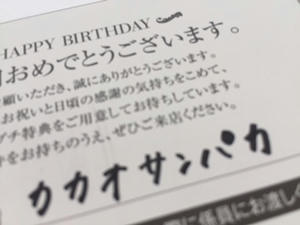 HAPPY BIRTHDAY
おめでとうございます。
顧いただき、誠にありがとうございます。
お祝いと日頃の感謝の気持ちをこめて、
プチ特典をご用意してお待ちしています。
をお持ちのうえ、ぜひご来店ください。
カカオサンパカ
に係員にお渡しく